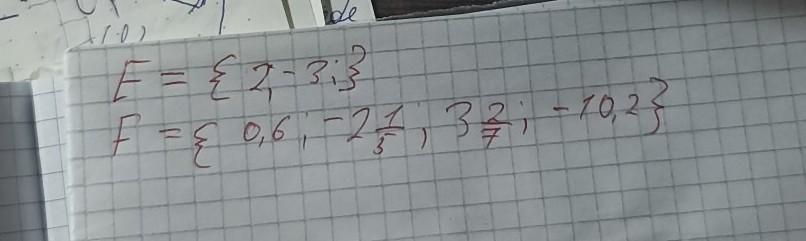 de
(.0)
E = { 2; - 3; }
F = { 0,6; - 2 1/5; 3 2/7; - 10,2 }